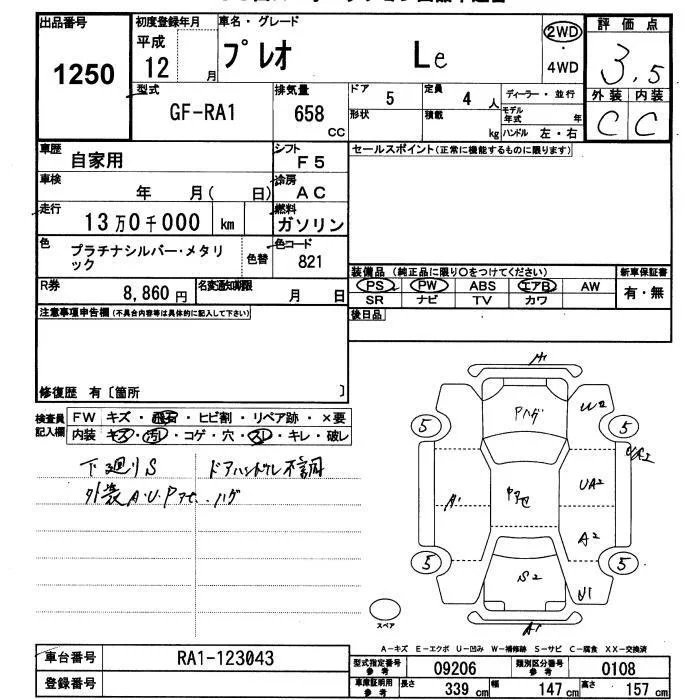 出品番号
1250
初度登録年月
平成
12 月
車名・グレード
プレオ Le
2WD
・
4WD
評価点
3.5
外装 内装
C C
型式
GF-RA1
排気量
658
CC
ドア 5
定員 4 人
ディーラー・並行
形状
積載 kg
モデル年式 年
ハンドル 左・右
車歴
自家用
シフト
F5
セールスポイント(正常に機能するものに限ります)
車検
年 月( 日)
冷房
AC
走行
13万0千000 km
燃料
ガソリン
色
プラチナシルバー・メタリ
ック
色替
色コード
821
R券
8,860円
名変通知期限
月 日
装備品(純正品に限り〇をつけてください)
PS PW ABS エアB AW
SR ナビ TV カワ
新車保証書
有・無
後日品
注意事項申告欄(不具合内容等は具体的に記入して下さい)
修復歴 有〔箇所 〕
検査員
記入欄
FW キズ・飛石・ヒビ割・リペア跡・×要
内装 キズ・汚レ・コゲ・穴・スレ・キレ・破レ
下廻りS ドアハンドル不調
外装A.U.Pアセ、ハゲ
A1
Pハゲ
W2
5 5
UA2
A1
Pアセ
UA2
A2
5 5
S2
U1
A1
スペア
A-キズ E-エクボ U-凹み W-補修跡 S-サビ C-腐食 XX-交換済
車台番号 RA1-123043
登録番号
型式指定番号
参考
09206
類別区分番号
参考
0108
車庫証明用
参考
長さ 339 cm
幅 147 cm
高さ 157 cm